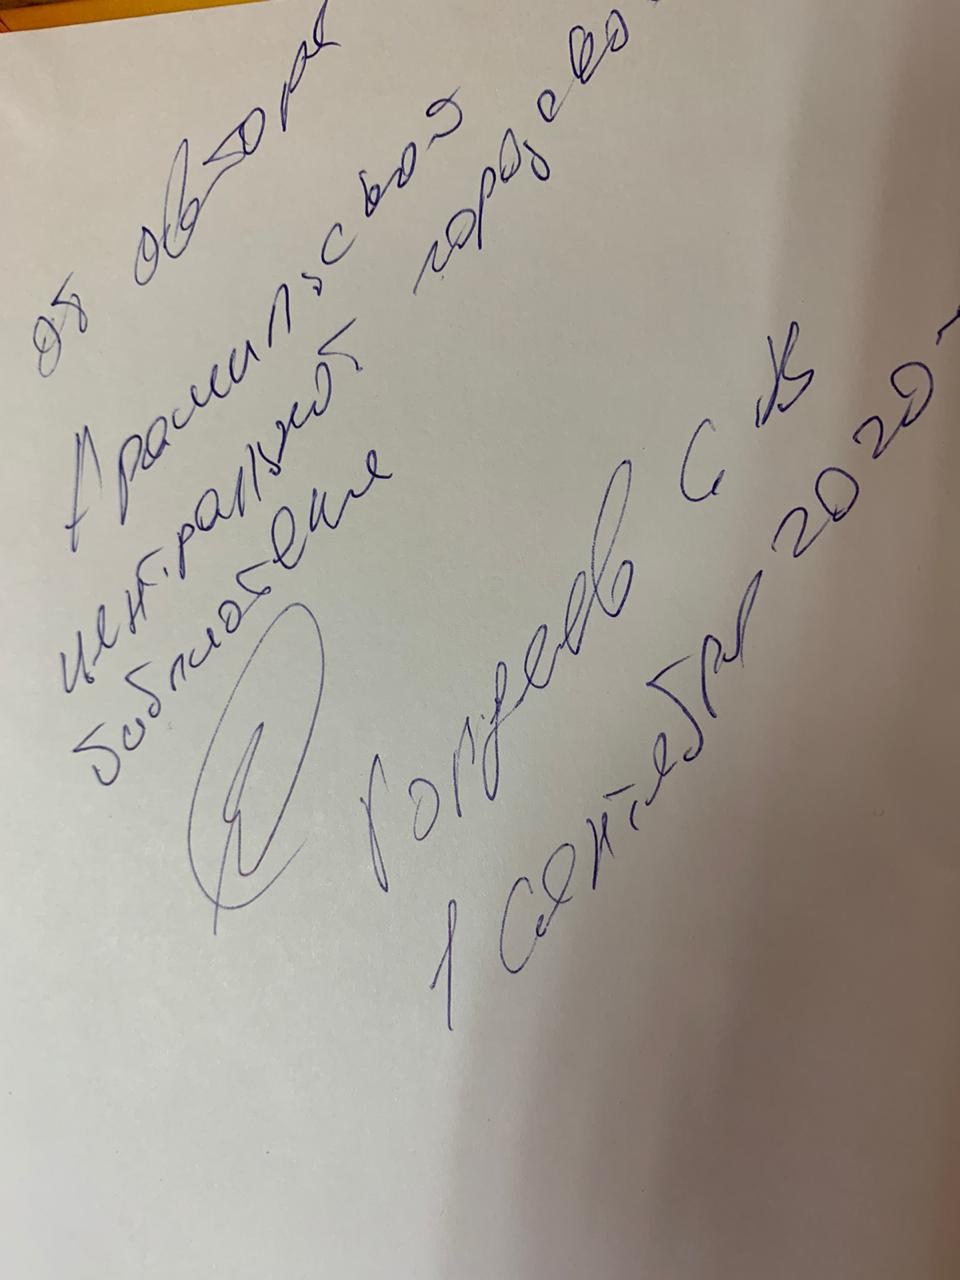 от автора
Арамильской
центральной городско
библиотеке
Гордеев С В
1 сентября 2020